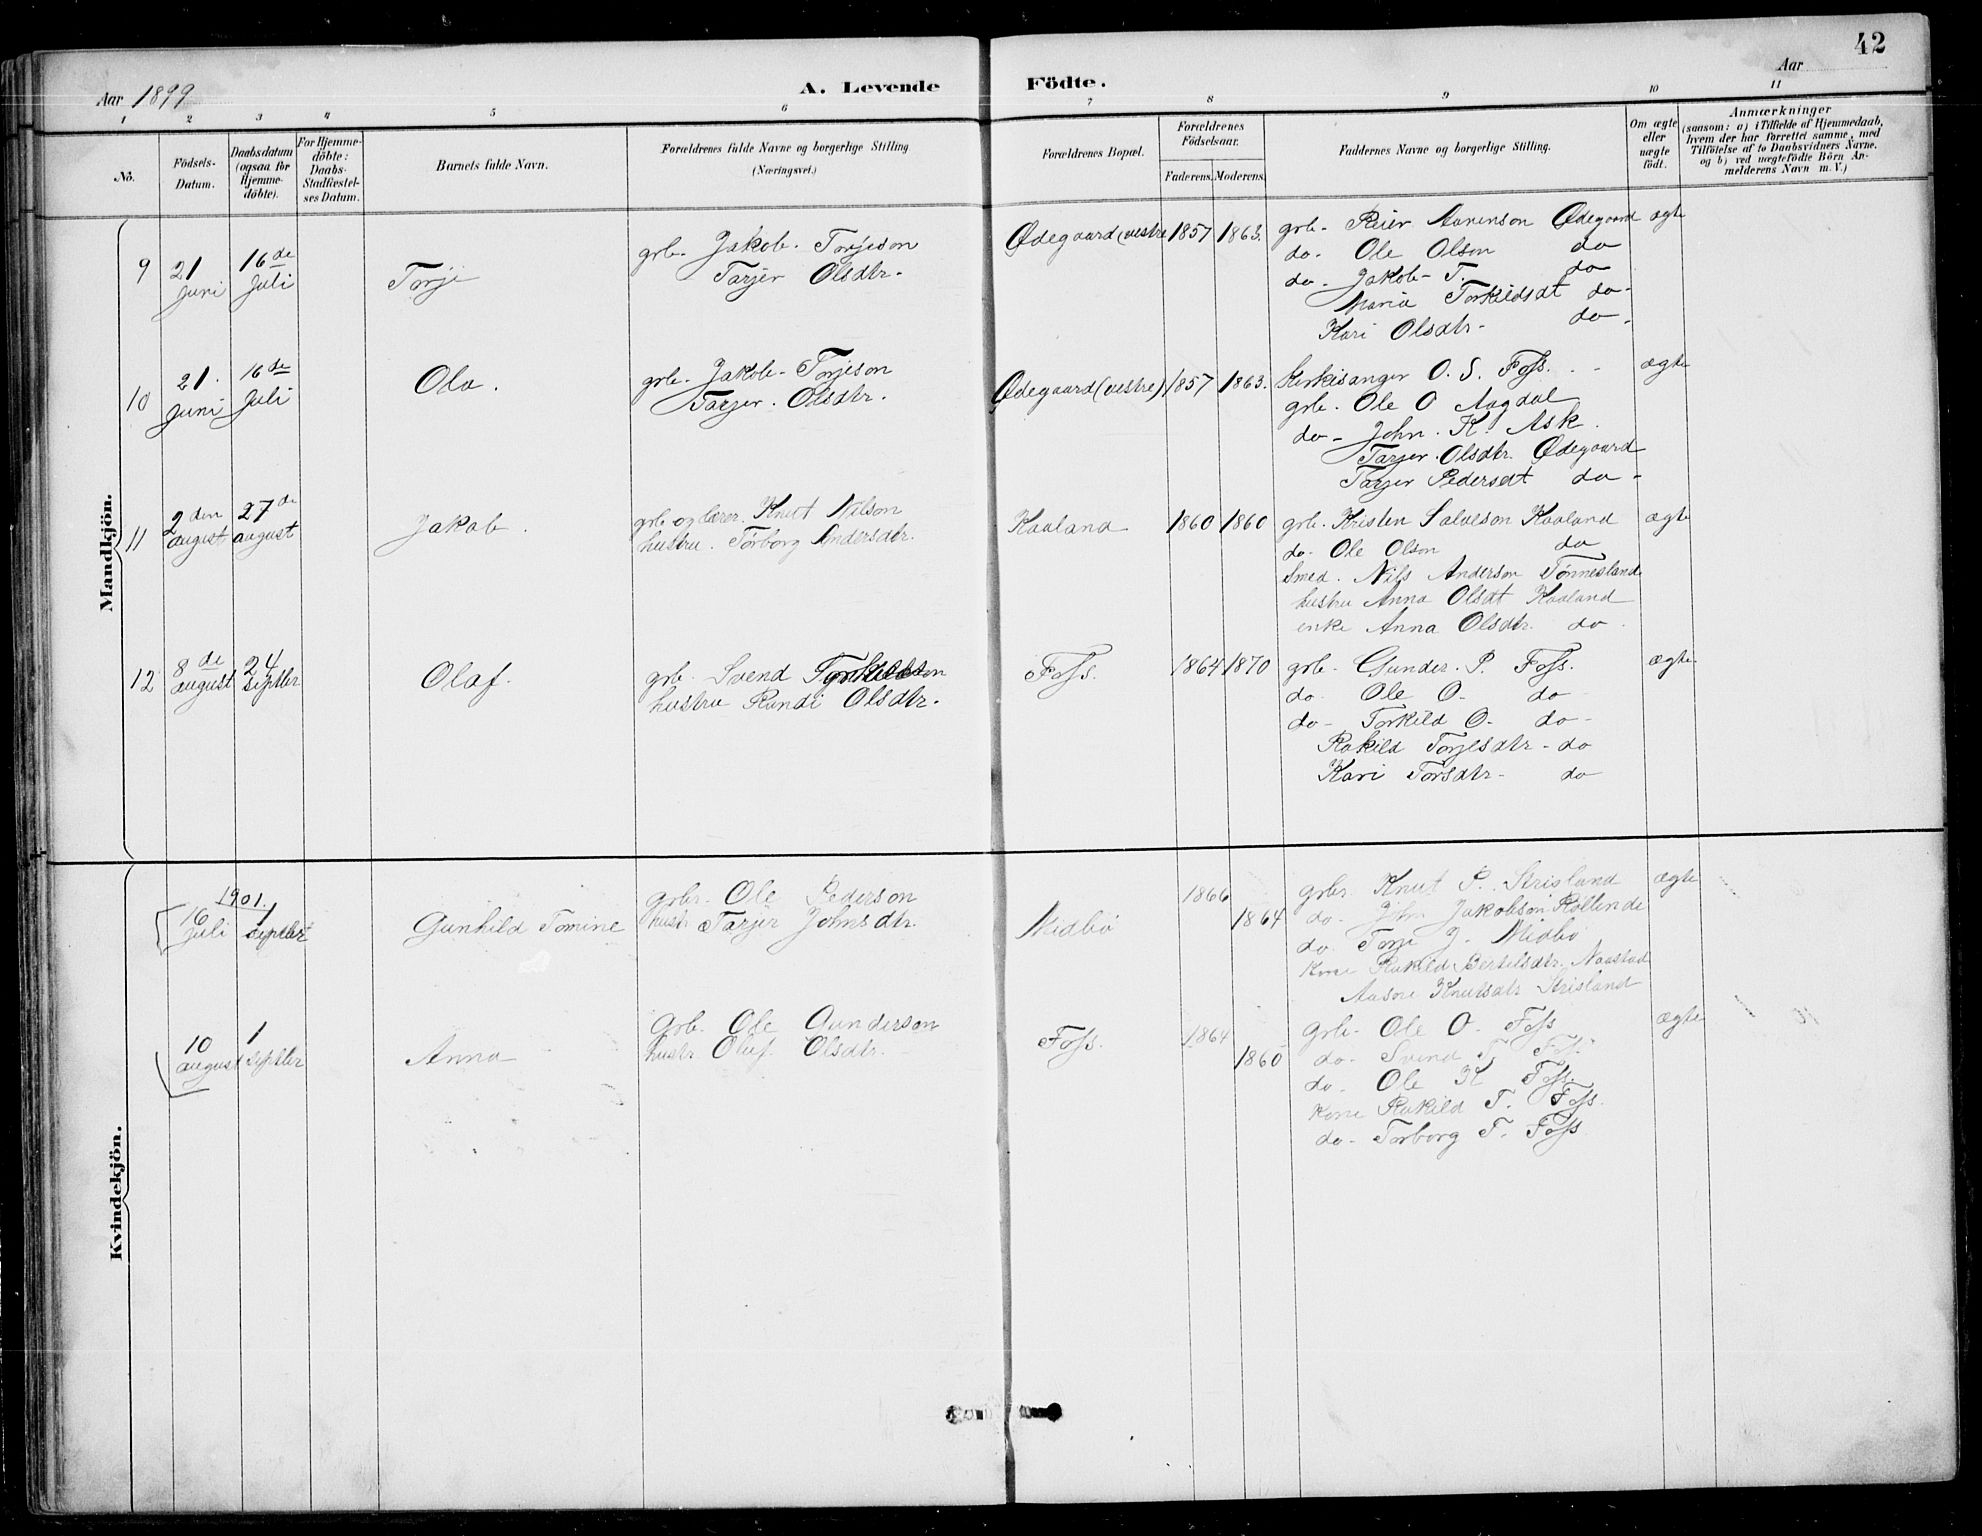 42
Aar 1899
A. Levende
Födte.
Aar
1 2 3 4 5 6 7 8 9 10 11
No.
Födsels-
Datum.
Daabsdatum
(ogsaa for
Hjemme-
döbte).
For Hjemme-
döbte:
Daabs-
Stadfæstel-
ses Datum.
Barnets fulde Navn.
Forældrenes fulde Navne og borgerlige Stilling
(Næringsvei.)
Forældrenes Bopæl.
Forældrenes
Födselsaar.
Faderens. Moderens.
Faddernes Navne og borgerlige Stilling.
Om ægte
eller
uægte
födt.
Anmærkninger
(saasom: a) i Tilfælde af Hjemmedaab,
hvem der har forrettet samme, med
Tilföielse af to Daabsvidners Navne.
og b) ved uægtefödte Börn An-
melderens Navn m.V.)
Mandkjön.
9
21
Juni
16de
Juli
Torje
grb. Jakob. Torjeson
Tarjer Olsdtr.
Ødegaard (vestre
1857 1863.
grb. Reier Aanenson Ødegaard
do. Ole Olson do
do. Jakob T. do
Maria Torkildsdt do.
Kari Olsdtr. do.
ægte
10
21.
Juni
16de
Juli
Ola.
grb. Jakob. Torjeson
Tarjer. Olsdtr.
Ødegaard (vestre)
1857 1863.
Kirkisanger O. S. Foss.
grb. Ole O Aagdal
do. John. K. Ask.
Tarjer. Olsdtr. Ødegaard
Tarjer Pedersdt do.
ægte
11
2den
august
27de
august
Jakob.
grb og lærer. Knut Nilson
hustru. Torborg Andersdtr.
Kaaland
1860 1860
grb. Kristen Salveson Kaaland
do. Ole Olson do
Smed. Nils Anderson Tønnesland
hustru Anna Olsdt Kaaland
enke Anna Olsdtr. do.
ægte
12
8de
august
24
septbr
Olaf.
grb. Svend Torkildson
hustru Randi Olsdtr.
Foss.
1864 1870
grb. Gunder. P. Foss.
do. Ole O. do
do. Torkild O. do.
Rakild Torjesdtr. do
Kari Torsdtr. do
ægte
Kvindekjön.
1901.
16
Juli
1
septbr
Gunhild Tomine
grbr. Ole Pederson
hustr. Tarjer Johnsdtr.
Midbø
1866
1864
grbr Knut P. Strisland
do. John Jakobson
do. Torje J. Midbø
kone Rakild Bertelsdtr. Naastad
Aasne Knutsdtr Strisland
ægte
10
august
1
septbr
Anna
Grb. Ole Gunderson
hustr. Oluf. Olsdtr.
Foss.
1864
1860
grb. Ole O. Foss
do. Svend T. Foss.
do. Ole K Foss.
kone Rakild T. Foss.
do. Torborg T. Foss
ægte